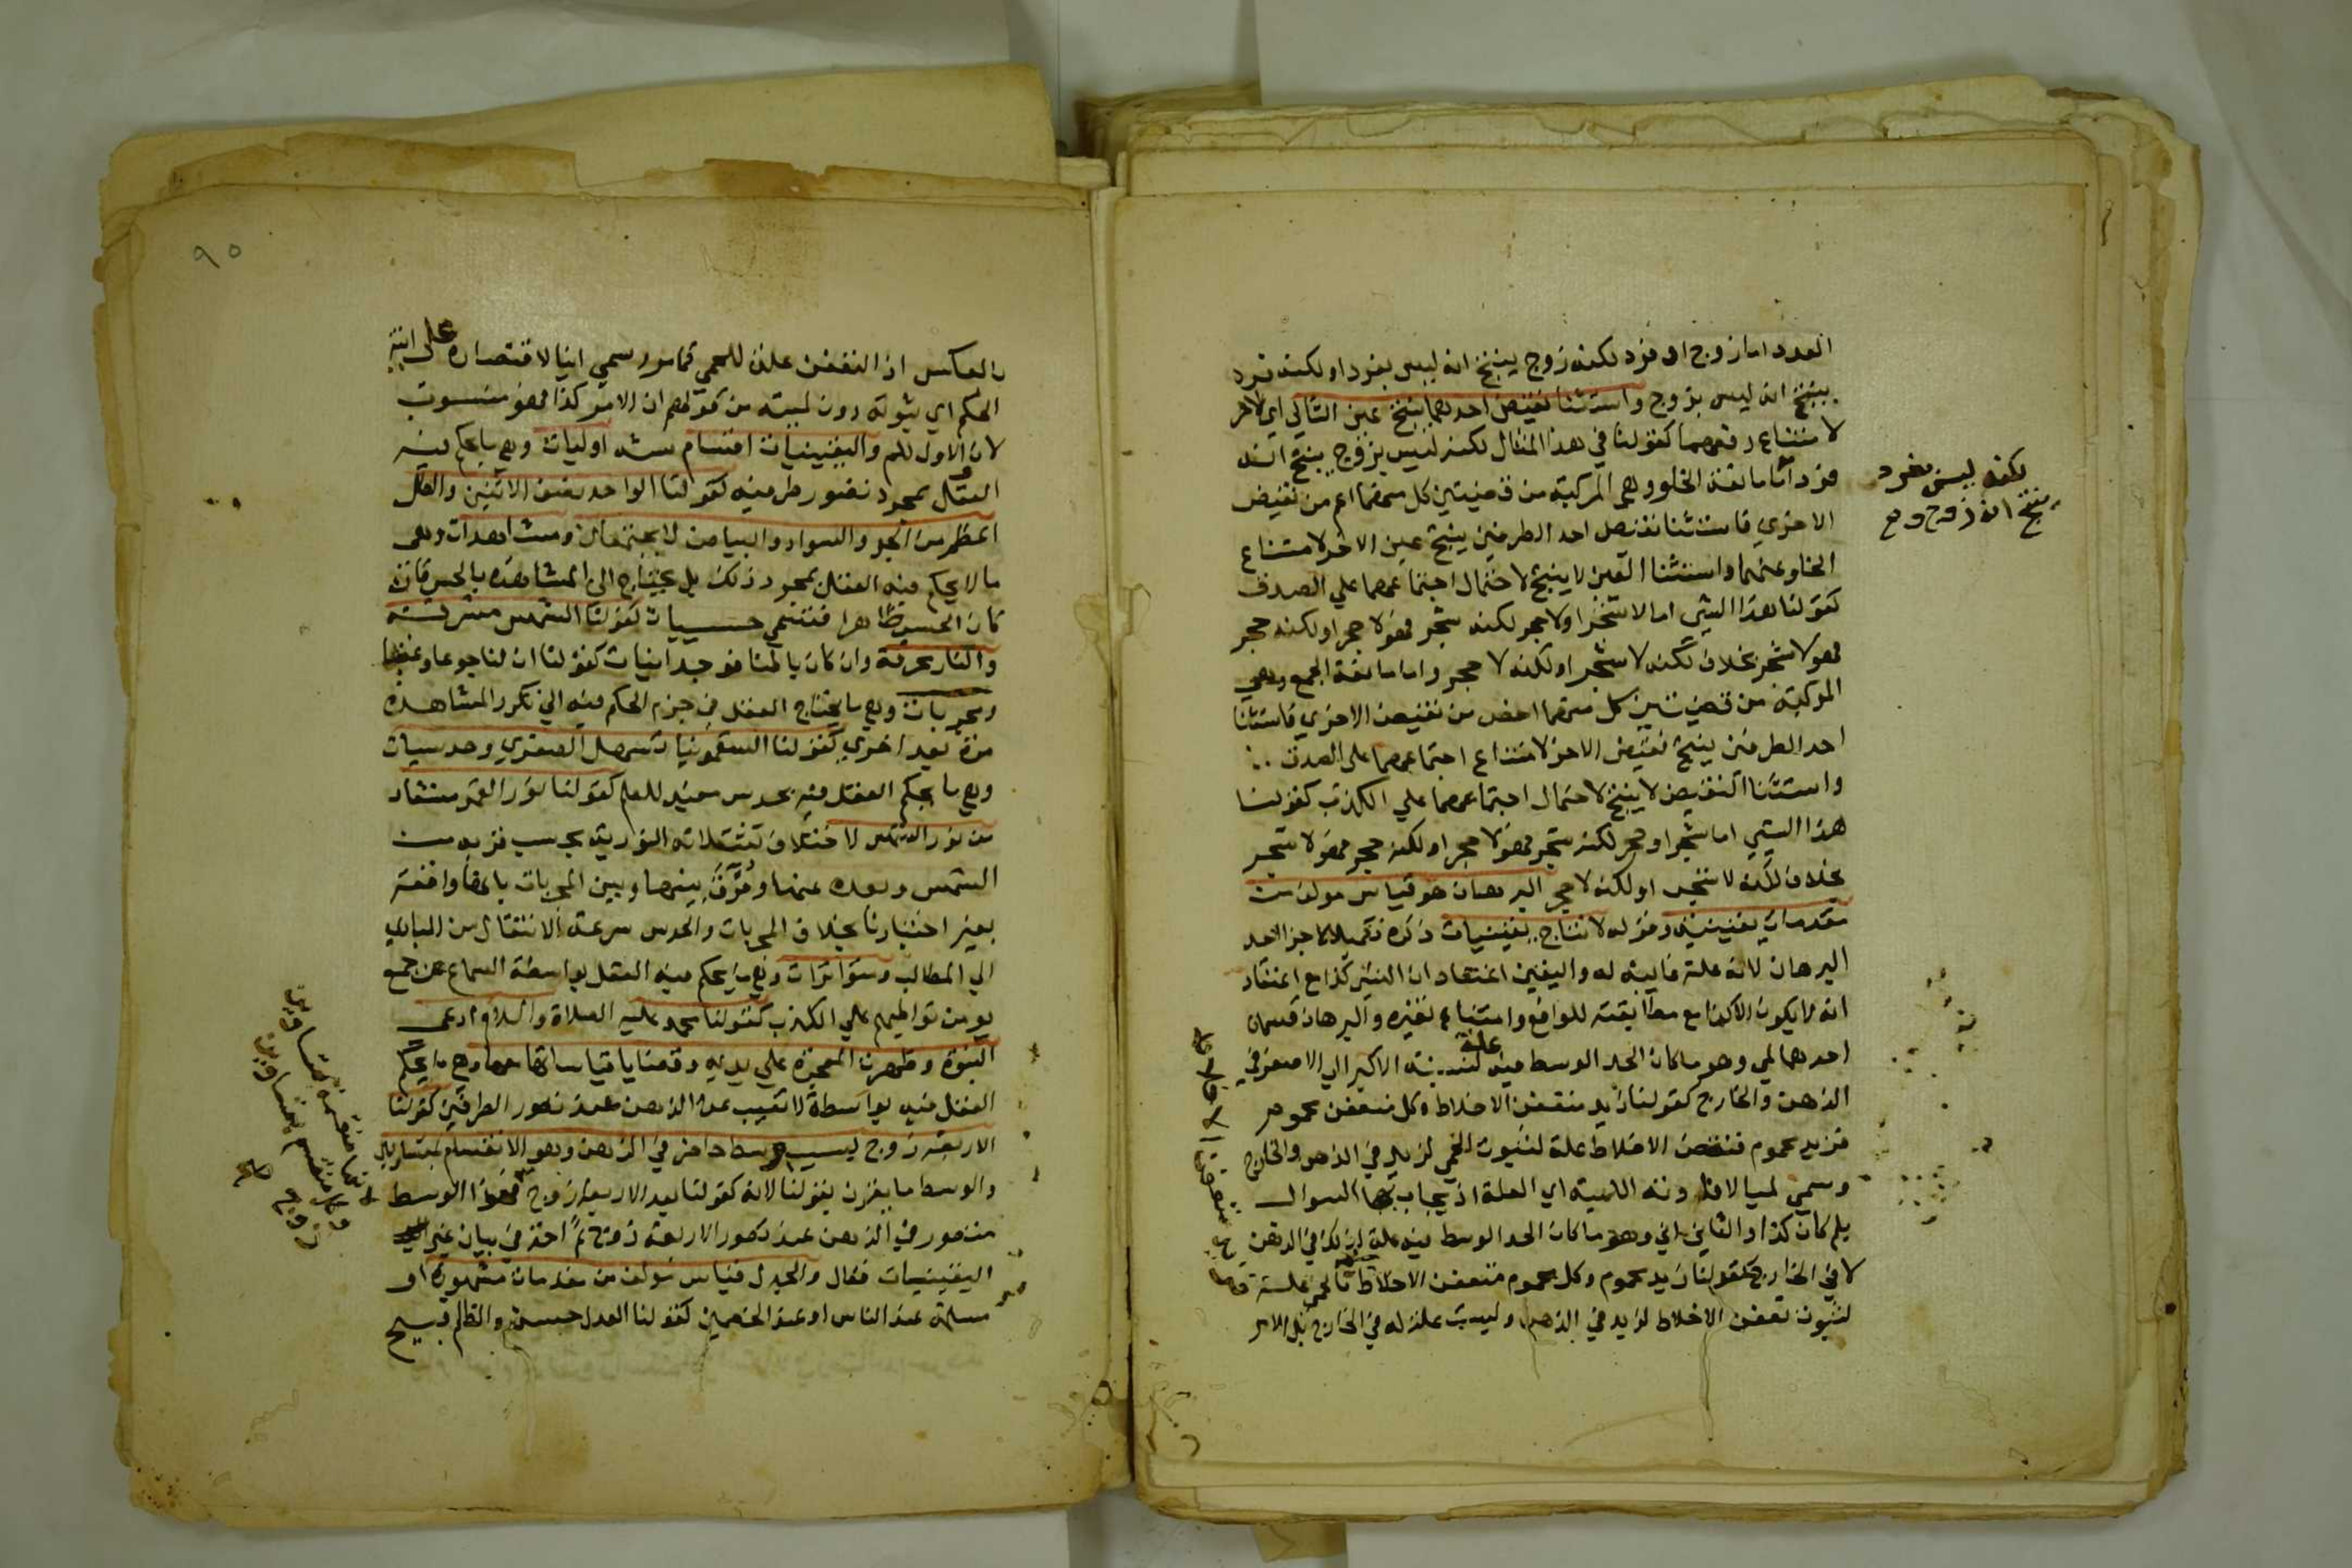 العدد اما زوج او فرد لكنه زوج ينتج انه ليس بفرد او لكنه فرد
ينتج انه ليس بزوج واستثنا نقيض احدهما ينتج عين التالي اي الاخر
لامتناع رفعهما كقولنا في هذا المثال لكنه ليس بزوج ينتج انه
فرد اما مانعة الخلو وهي المركبة من قضيتين كل منهما اعم من نقيض
الاخري فاستثنا نقيض احد الطرفين ينتج عين الاخر لامتناع
الخلو عنهما واستثنا العين لا ينتج لاحتمال اجتماعهما علي الصدق
كقولنا هذا الشي اما لا شجر او لا حجر لكنه شجر فهو لا حجر او لكنه حجر
فهو لا شجر بخلاف لكنه لا شجر او لكنه لا حجر واما مانعة الجمع وهي
المركبة من قضيتين كل منهما اخص من نقيض الاخري فاستثنا
احد الطرفين ينتج نقيض الاخر لامتناع اجتماعهما على الصدق
واستثنا النقيض لا ينتج لاحتمال اجتماعهما علي الكذب كقولنا
هذا الشي اما شجر او حجر لكنه شجر فهو لا حجر او لكنه حجر فهو لا شجر
بخلاف لكنه لا شجر او لكنه لا حجر البرهان هو قياس مولف من
مقدمات يقينية وقوله لانتاج يقينيات ذكره تكميلا لاجزا حد
البرهان لانه علة غايية له واليقين اعتقاد ان الشي كذا مع اعتقاد
انه لا يكون الا كذا مع مطابقته للواقع وامتناع تغيره والبرهان قسمان
احدهما لمي وهو ما كان الحد الوسط فيه علة لنسبة الاكبر الي الاصغر في
الذهن والخارج كقولنا زيد متعفن الاخلاط وكل متعفن محموم
فزيد محموم فتعفن الاخلاط علة لثبوت الحمي لزيد في الذهن والخارج
وسمي لميا لافادته اللمية اي العلة اذ يجاب بها السوال
بلم كان كذا والثاني اني وهو ما كان الحد الوسط فيه علة لذلك في الذهن
لا في الخارج كقولنا زيد محموم وكل محموم متعفن الاخلاط فالحمي علة
لثبوت تعفن الاخلاط لزيد في الذهن وليست علة له في الخارج بل الامر
لكنه ليس بفرد
ينتج انه زوج وصح
بالعكس اذ التعفن علة للحمي كما مر وسمي انيا لاقتصاره على انية
الحكم اي ثبوته دون لميته من قولهم ان الامر كذا فهو منسوب
لان الاول للم واليقينيات اقسام ستة اوليات وهي ما يحكم فيه
العقل بمجرد تصور طرفيه كقولنا الواحد نصف الاثنين والكل
اعظم من الجزو والسواد والبياض لا يجتمعان ومشاهدات وهي
ما لا يحكم فيه العقل بمجرد ذلك بل يحتاج الى المشاهدة بالحس فان
كان الحس ظاهرا فتسمي حسيات كقولنا الشمس مشرقة
والنار محرقة وان كان باطنا فوجدانيات كقولنا ان لنا جوعا وغضبا
ومجربات وهي ما يحتاج العقل في جزم الحكم فيه الي تكرر المشاهدة
مرة بعد اخري كقولنا السقمونيا تسهل الصفري وحدسيات
وهي ما يحكم العقل فيه بحدس مفيد للعلم كقولنا نور القمر مستفاد
من نور الشمس لاختلاف تشكلاته النورية بحسب قربه من
الشمس وبعده عنها وفرق بينها وبين المجربات بانها واقعة
بغير اختيارنا بخلاف المجربات والحدس سرعة الانتقال من المبادي
الي المطالب ومتواترات وهي ما يحكم فيه العقل بواسطة السماع عن جمع
يومن تواطيهم علي الكذب كقولنا محمد عليه الصلاة والسلام ادعى
النبوة وظهرت المعجزة علي يديه وقضايا قياساتها معها وهي ما يحكم
العقل فيه بواسطة لا تغيب عن الذهن عند تصور الطرفين كقولنا
الاربعة زوج بسبب وسط حاضر في الذهن وهو الانقسام بمتساويين
والوسط ما يقرن بقولنا لانه كقولنا بعد الاربعة زوج فهذا الوسط
متصور في الذهن عند تصور الاربعة زوج ثم اخذ في بيان غير
اليقينيات فقال والجدل قياس مولف من مقدمات مشهورة او
مسلمة عند الناس او عند الخصمين كقولنا العدل حسن والظلم قبيح
لانها منقسمة بمتساويين
وكل منقسم بمتساويين
زوج صح
٩٥